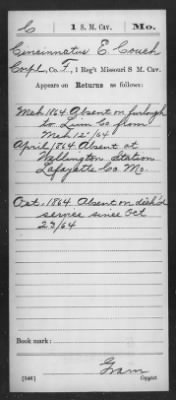 C 1 S. M. Cav. Mo.
Cincinnatus E. Couch
Corpl., Co. F, 1 Reg't Missouri S M. Cav.
Appears on Returns as follows:
Mch 1864 Absent on furlough
to Linn Co from
Mch 12/64
April 1864 Absent at
Wellington Station
Lafayette Co. Mo.
Oct. 1864. Absent on
service since Oct
23/64
Book mark:
(546) Copyist